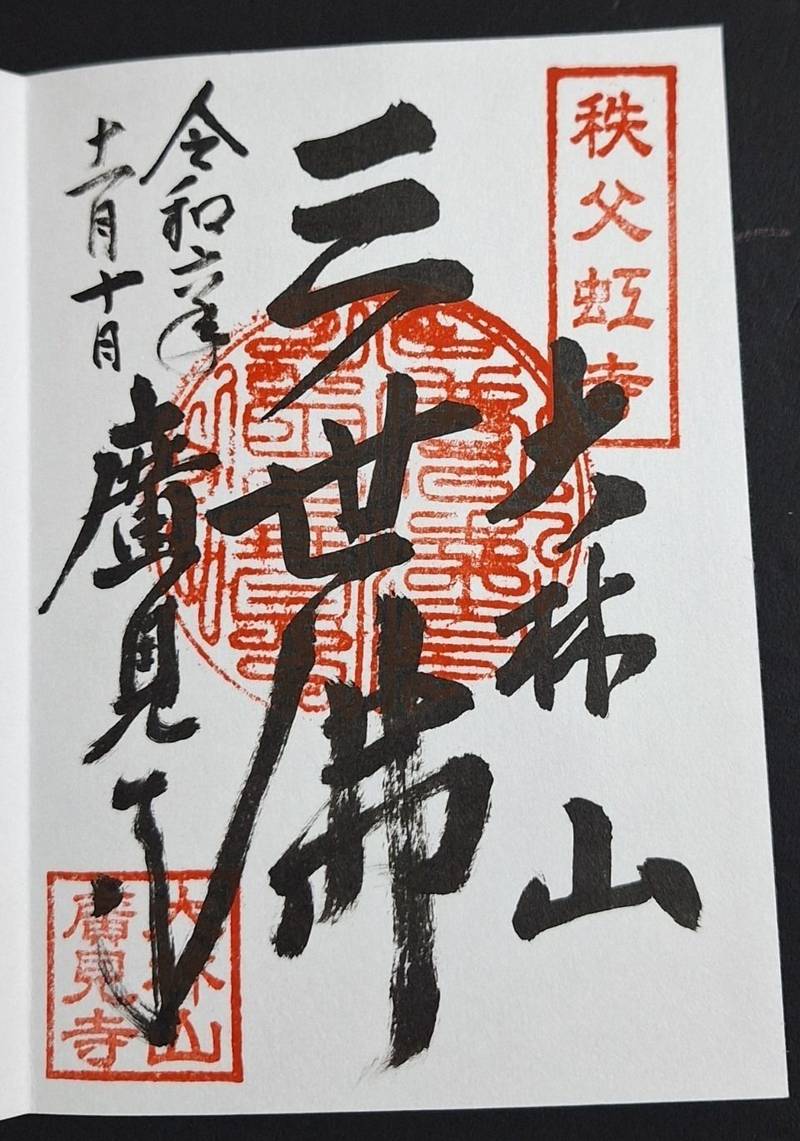 秩父虹寺
大林山
三世佛
令和六年
十一月十日
廣見寺
大林山
廣見寺